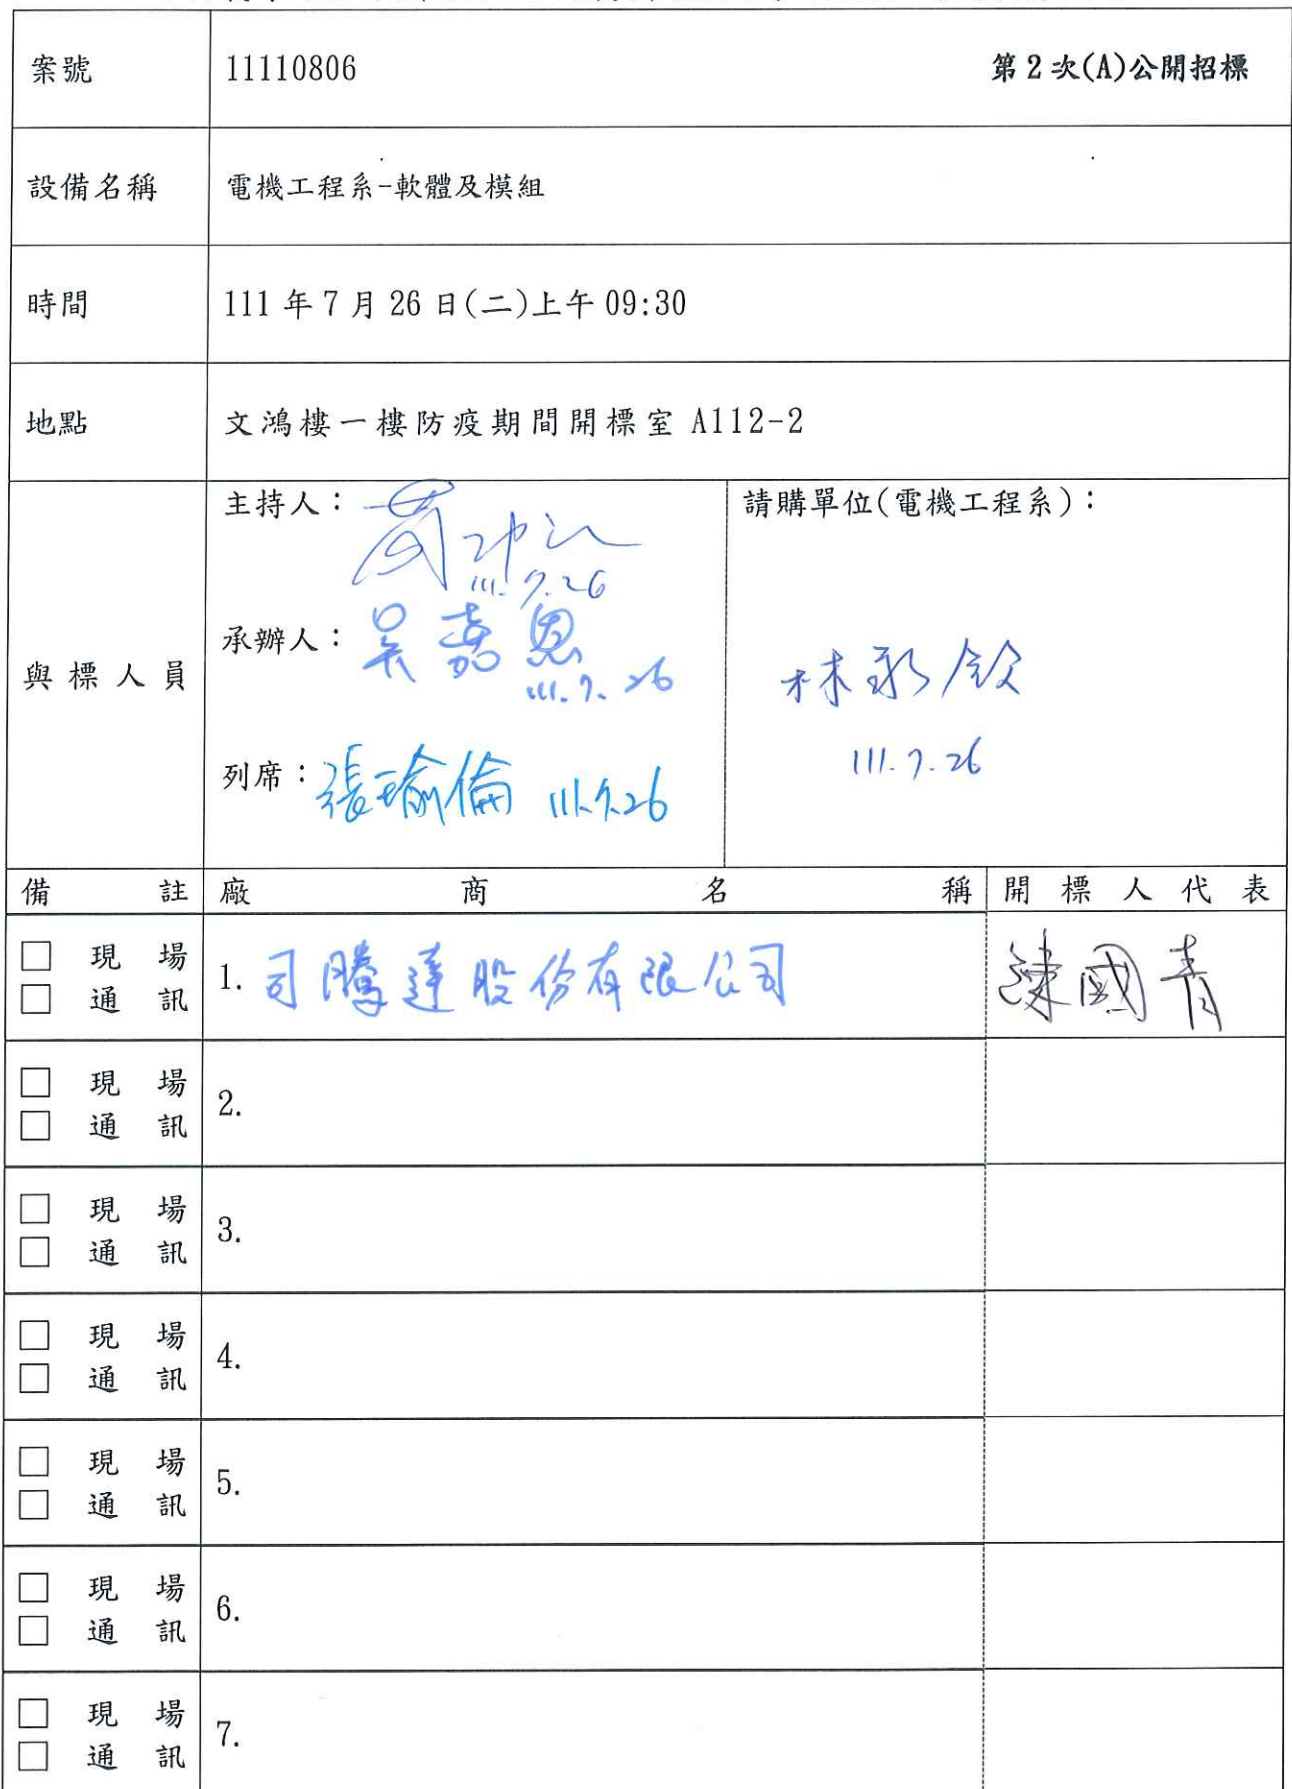 案號 11110806 第2次(A)公開招標
設備名稱 電機工程系-軟體及模組
時間 111 年 7 月 26 日(二)上午 09:30
地點 文鴻樓一樓防疫期間開標室 A112-2
與標人員
主持人：
111.7.26
承辦人：吳嘉恩
111.7.26
列席：張瑜倫 111.7.26
請購單位(電機工程系)：
林永欽
111.7.26
備註 廠商名稱 開標人代表
□ 現場
□ 通訊
1. 司騰達股份有限公司
國青
□ 現場
□ 通訊
2.
□ 現場
□ 通訊
3.
□ 現場
□ 通訊
4.
□ 現場
□ 通訊
5.
□ 現場
□ 通訊
6.
□ 現場
□ 通訊
7.